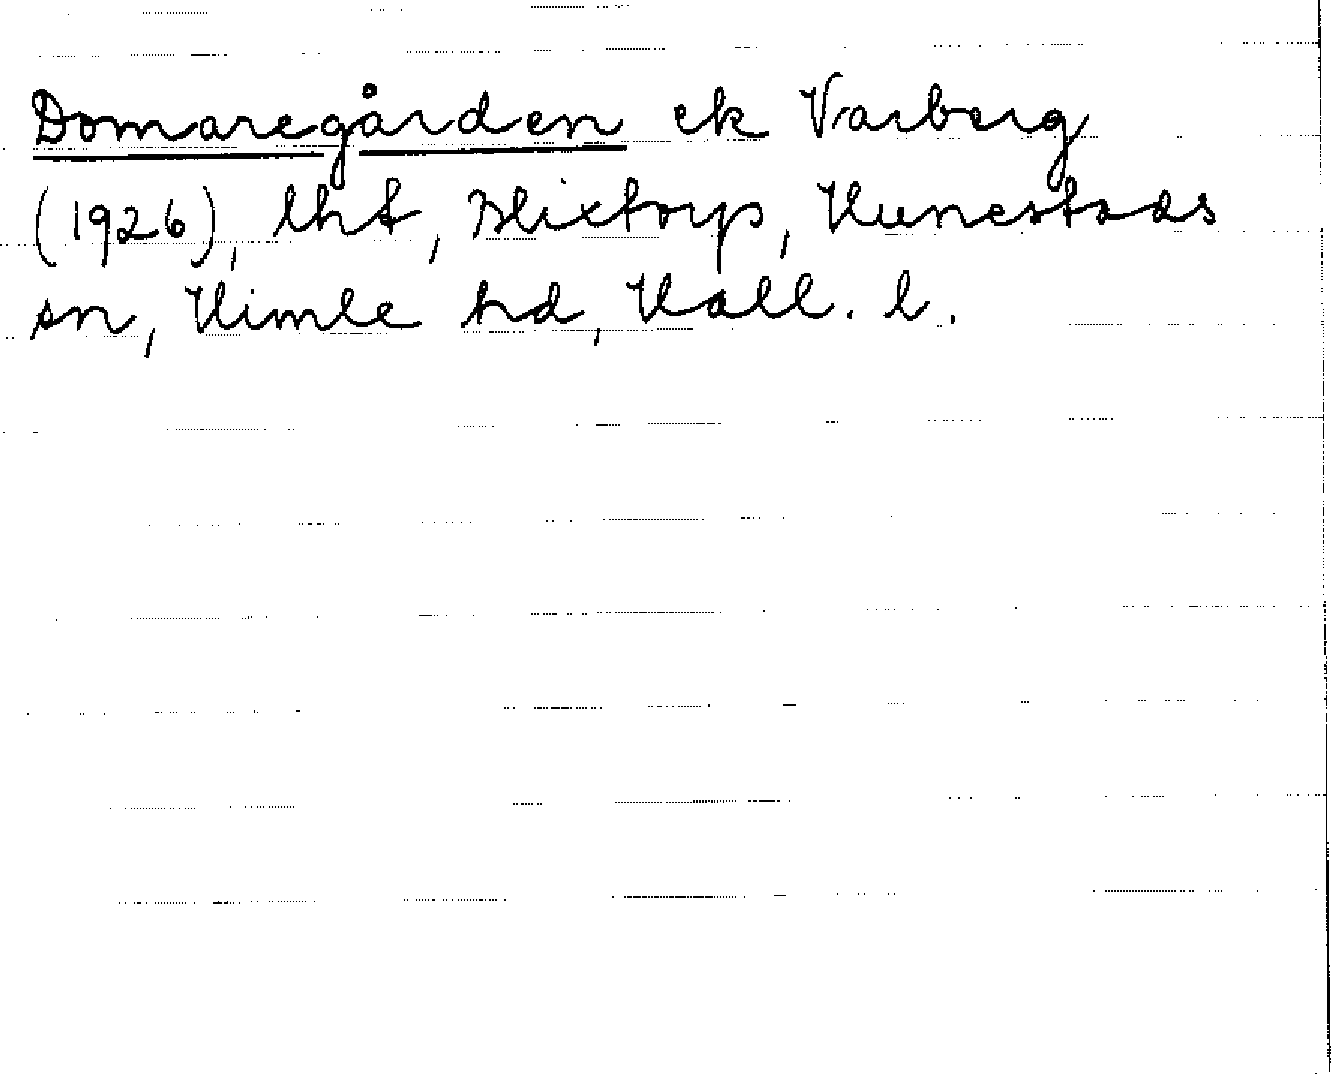 Domaregården ek Varberg
(1926), lht, Blixtorp, Hunestads
sn, Himle hd, Hall. l.